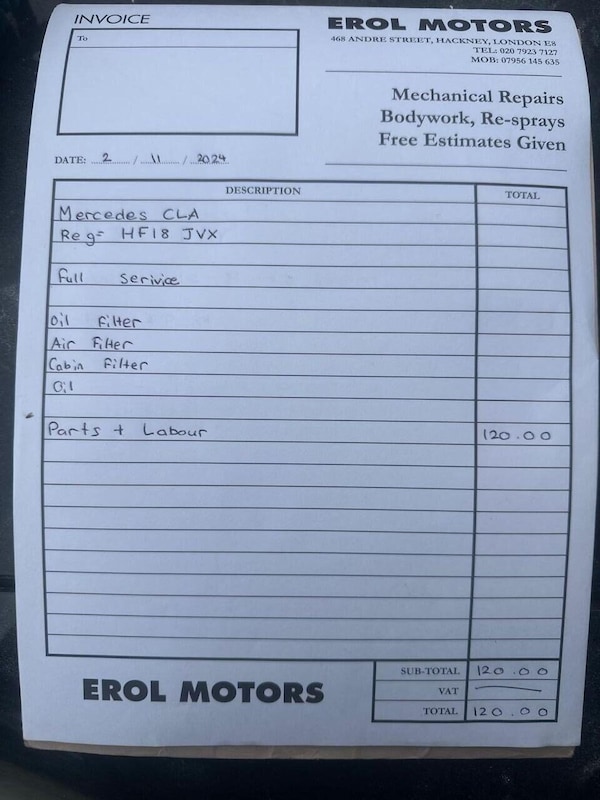 INVOICE
EROL MOTORS
468 ANDRE STREET, HACKNEY, LONDON E8
TEL: 020 7923 7127
MOB: 07956 145 635
To
Mechanical Repairs
Bodywork, Re-sprays
Free Estimates Given
DATE: 2 / 11 / 2024
DESCRIPTION TOTAL
Mercedes CLA
Reg= HF18 JVX
Full Serivice
Oil Filter
Air Filter
Cabin Filter
Oil
Parts + Labour 120.00
SUB-TOTAL 120.00
VAT
TOTAL 120.00
EROL MOTORS